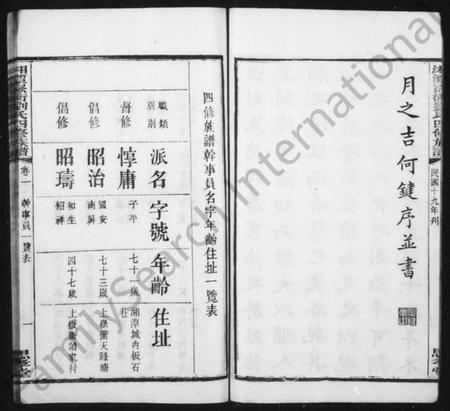 月之吉何鍵序並書
民國十九年刊
四修族譜幹事員名字年齡住址一覽表
職類別 派名 字號 年齡 住址
督修 惇庸 子平 七十一歲 湘潭城內板石巷
倡修 昭治 國安 南屏 七十三歲 上嶽衝天賤塘
倡修 昭璹 和生 紹祥 四十七歲 上嶽衝諸家村
劉氏四修族譜
卷一
幹事員一覽表
一
FamilySearch International